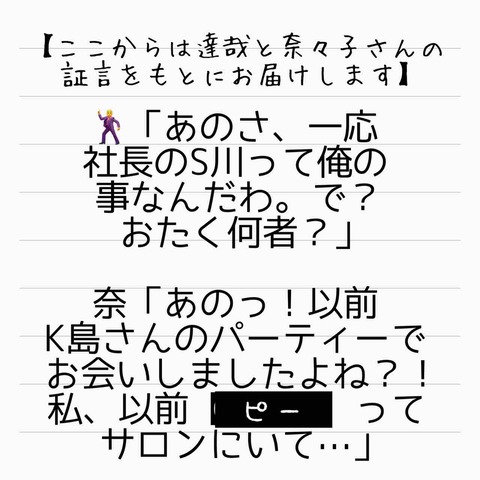 【ここからは達哉と奈々子さんの
証言をもとにお届けします】
🕺「あのさ、一応
社長のS川って俺の
事なんだわ。で？
おたく何者？」
奈「あのっ！以前
K島さんのパーティーで
お会いしましたよね？！
私、以前 ピー って
サロンにいて…」